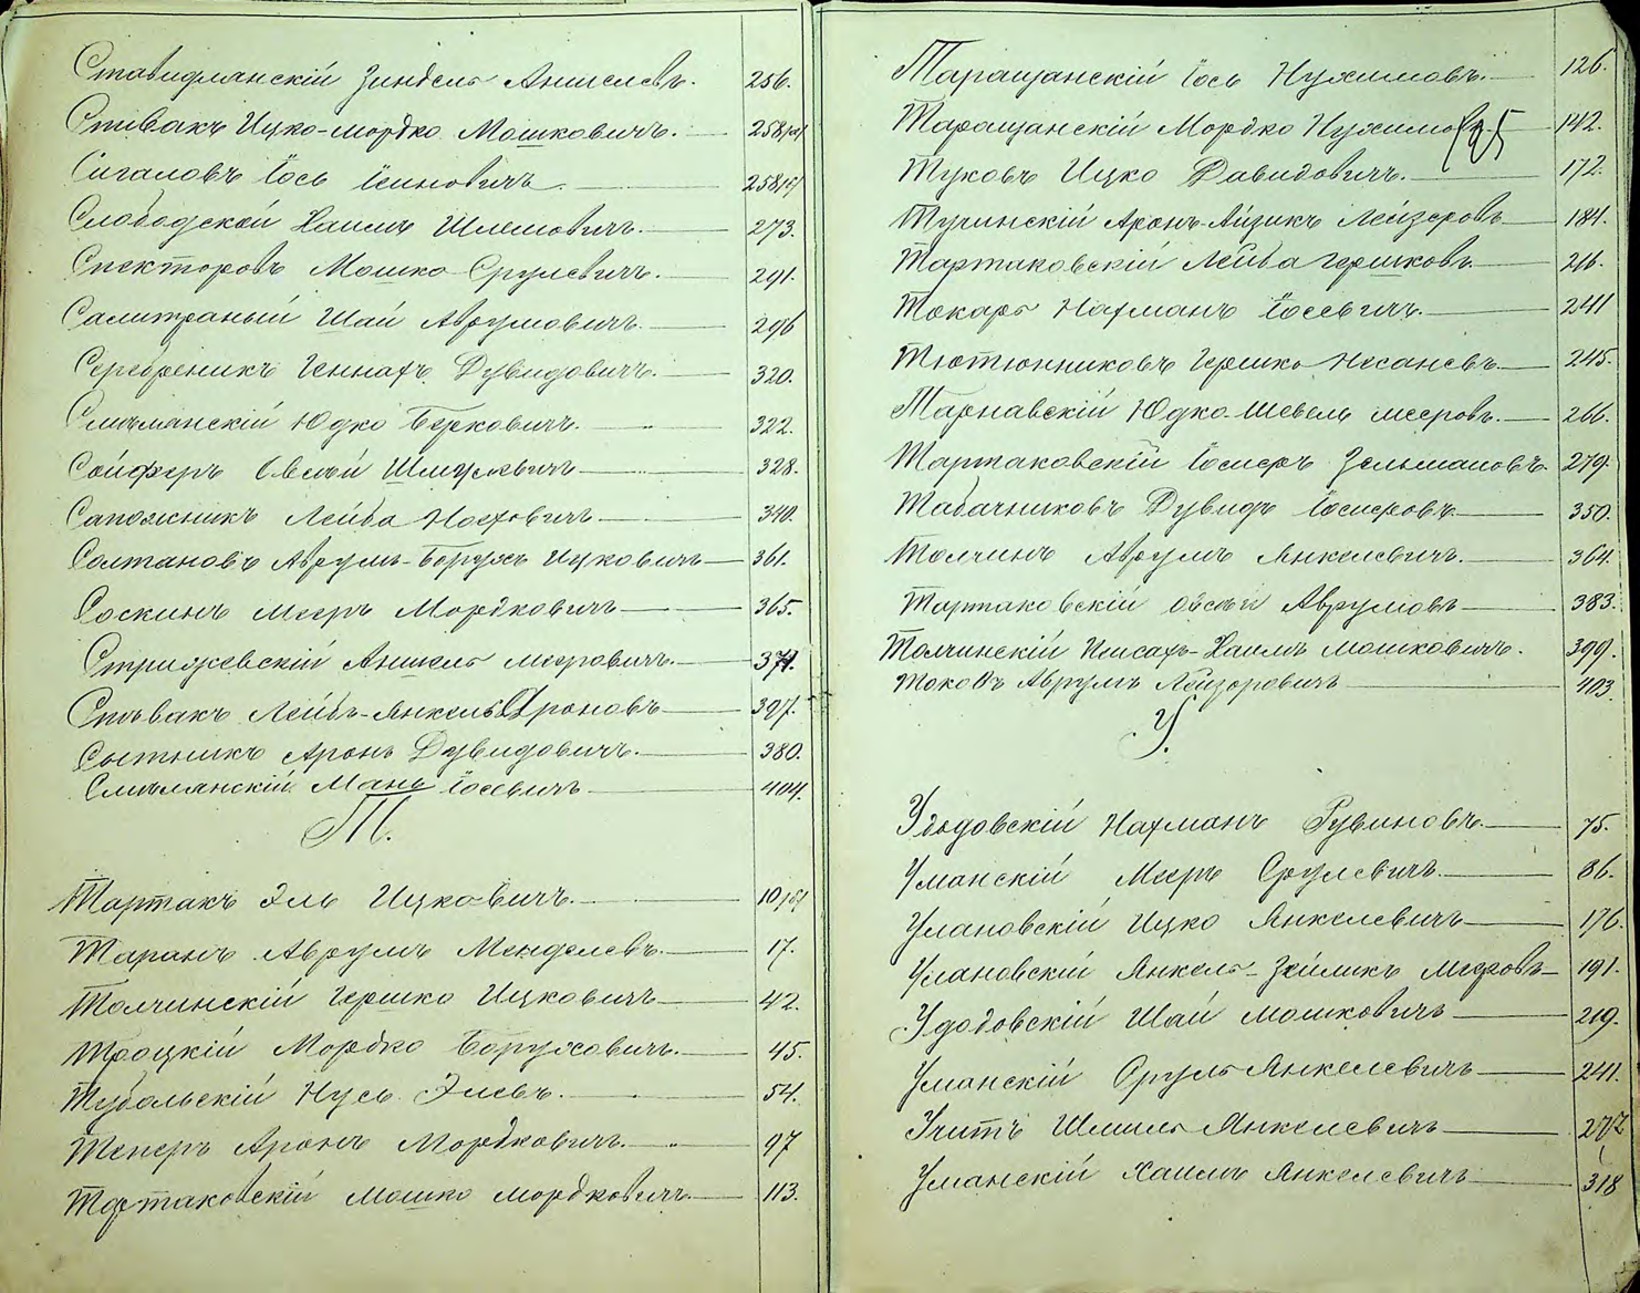 Ставидлянскій Зиндель Аншелевъ. 256.
Спивакъ Ицко-Мордко Мошковичъ. 258
Сигаловъ Іось 258
Слободской Хаимъ Шлемовичъ. 273.
Спекторовъ Мошко Срулевичъ. 291.
Салитраный Шаи Аврумовичъ. 296
Серебреникъ Геннахъ Дувидовичъ. 320.
Смѣлянскій Юдко Берковичъ. 322.
Сойферъ Овсѣй Шмулевичъ 328.
Сапожникъ Лейба Ноеховичъ 340.
Солтановъ Аврумъ-Борухъ Ицковичъ 361.
Соскинъ Мееръ Мордковичъ 365.
Стрижевскій Аншель Мееровичъ. 371.
Спѣвакъ Лейбъ-Янкель Ароновъ 397.
Сытникъ Аронъ Дувидовичъ. 380.
Смѣлянскій Мань Іосевичъ 404.
Т.
Тартакъ Эль Ицковичъ. 10
Таранъ Аврумъ Менделевъ. 17.
Толчинскій Гершко Ицковичъ 42.
Троцкій Мордко Боруховичъ. 45.
Тубольскій Нусь Элевъ. 54.
Теперъ Аронъ Мордковичъ. 97
Тартаковскій Мошко Мордковичъ. 113.
Таращанскій Іось Нухимовъ. 126.
Таращанскій Мордко Нухимовъ. 142.
Туковъ Ицко Давидовичъ. 172.
Тучинскій Аронъ-Айзикъ Лейзеровъ 184.
Тартаковскій Лейба Гершковъ 216.
Токарь Нахманъ Іосевичъ. 241
Тютюнниковъ Гершко Несаневъ. 245.
Тарнавскій Юдко-Шевель Мееровъ. 266.
Тартаковскій Іосперъ Зельмановъ. 279.
Табачниковъ Дувидъ Іосперовъ. 350.
Толчинъ Аврумъ Янкелевичъ. 364.
Тартаковскій Овсѣй Аврумовъ 383.
Толчинскій Хаимъ Мошковичъ. 399.
Токовъ Аврумъ Лейзоровичъ 403.
У.
Удодовскій Нахманъ Рувиновъ. 75.
Уманскій Мееръ Срулевичъ. 86.
Улановскій Ицко Янкелевичъ 176.
Улановскій Янкель-Зейликъ Мееровъ 191.
Удодовскій Шаи Мошковичъ 219.
Уманскій Сруль Янкелевичъ 241.
Учитъ Шмиль Янкелевичъ 272
Уманскій Хаимъ Янкелевичъ 318